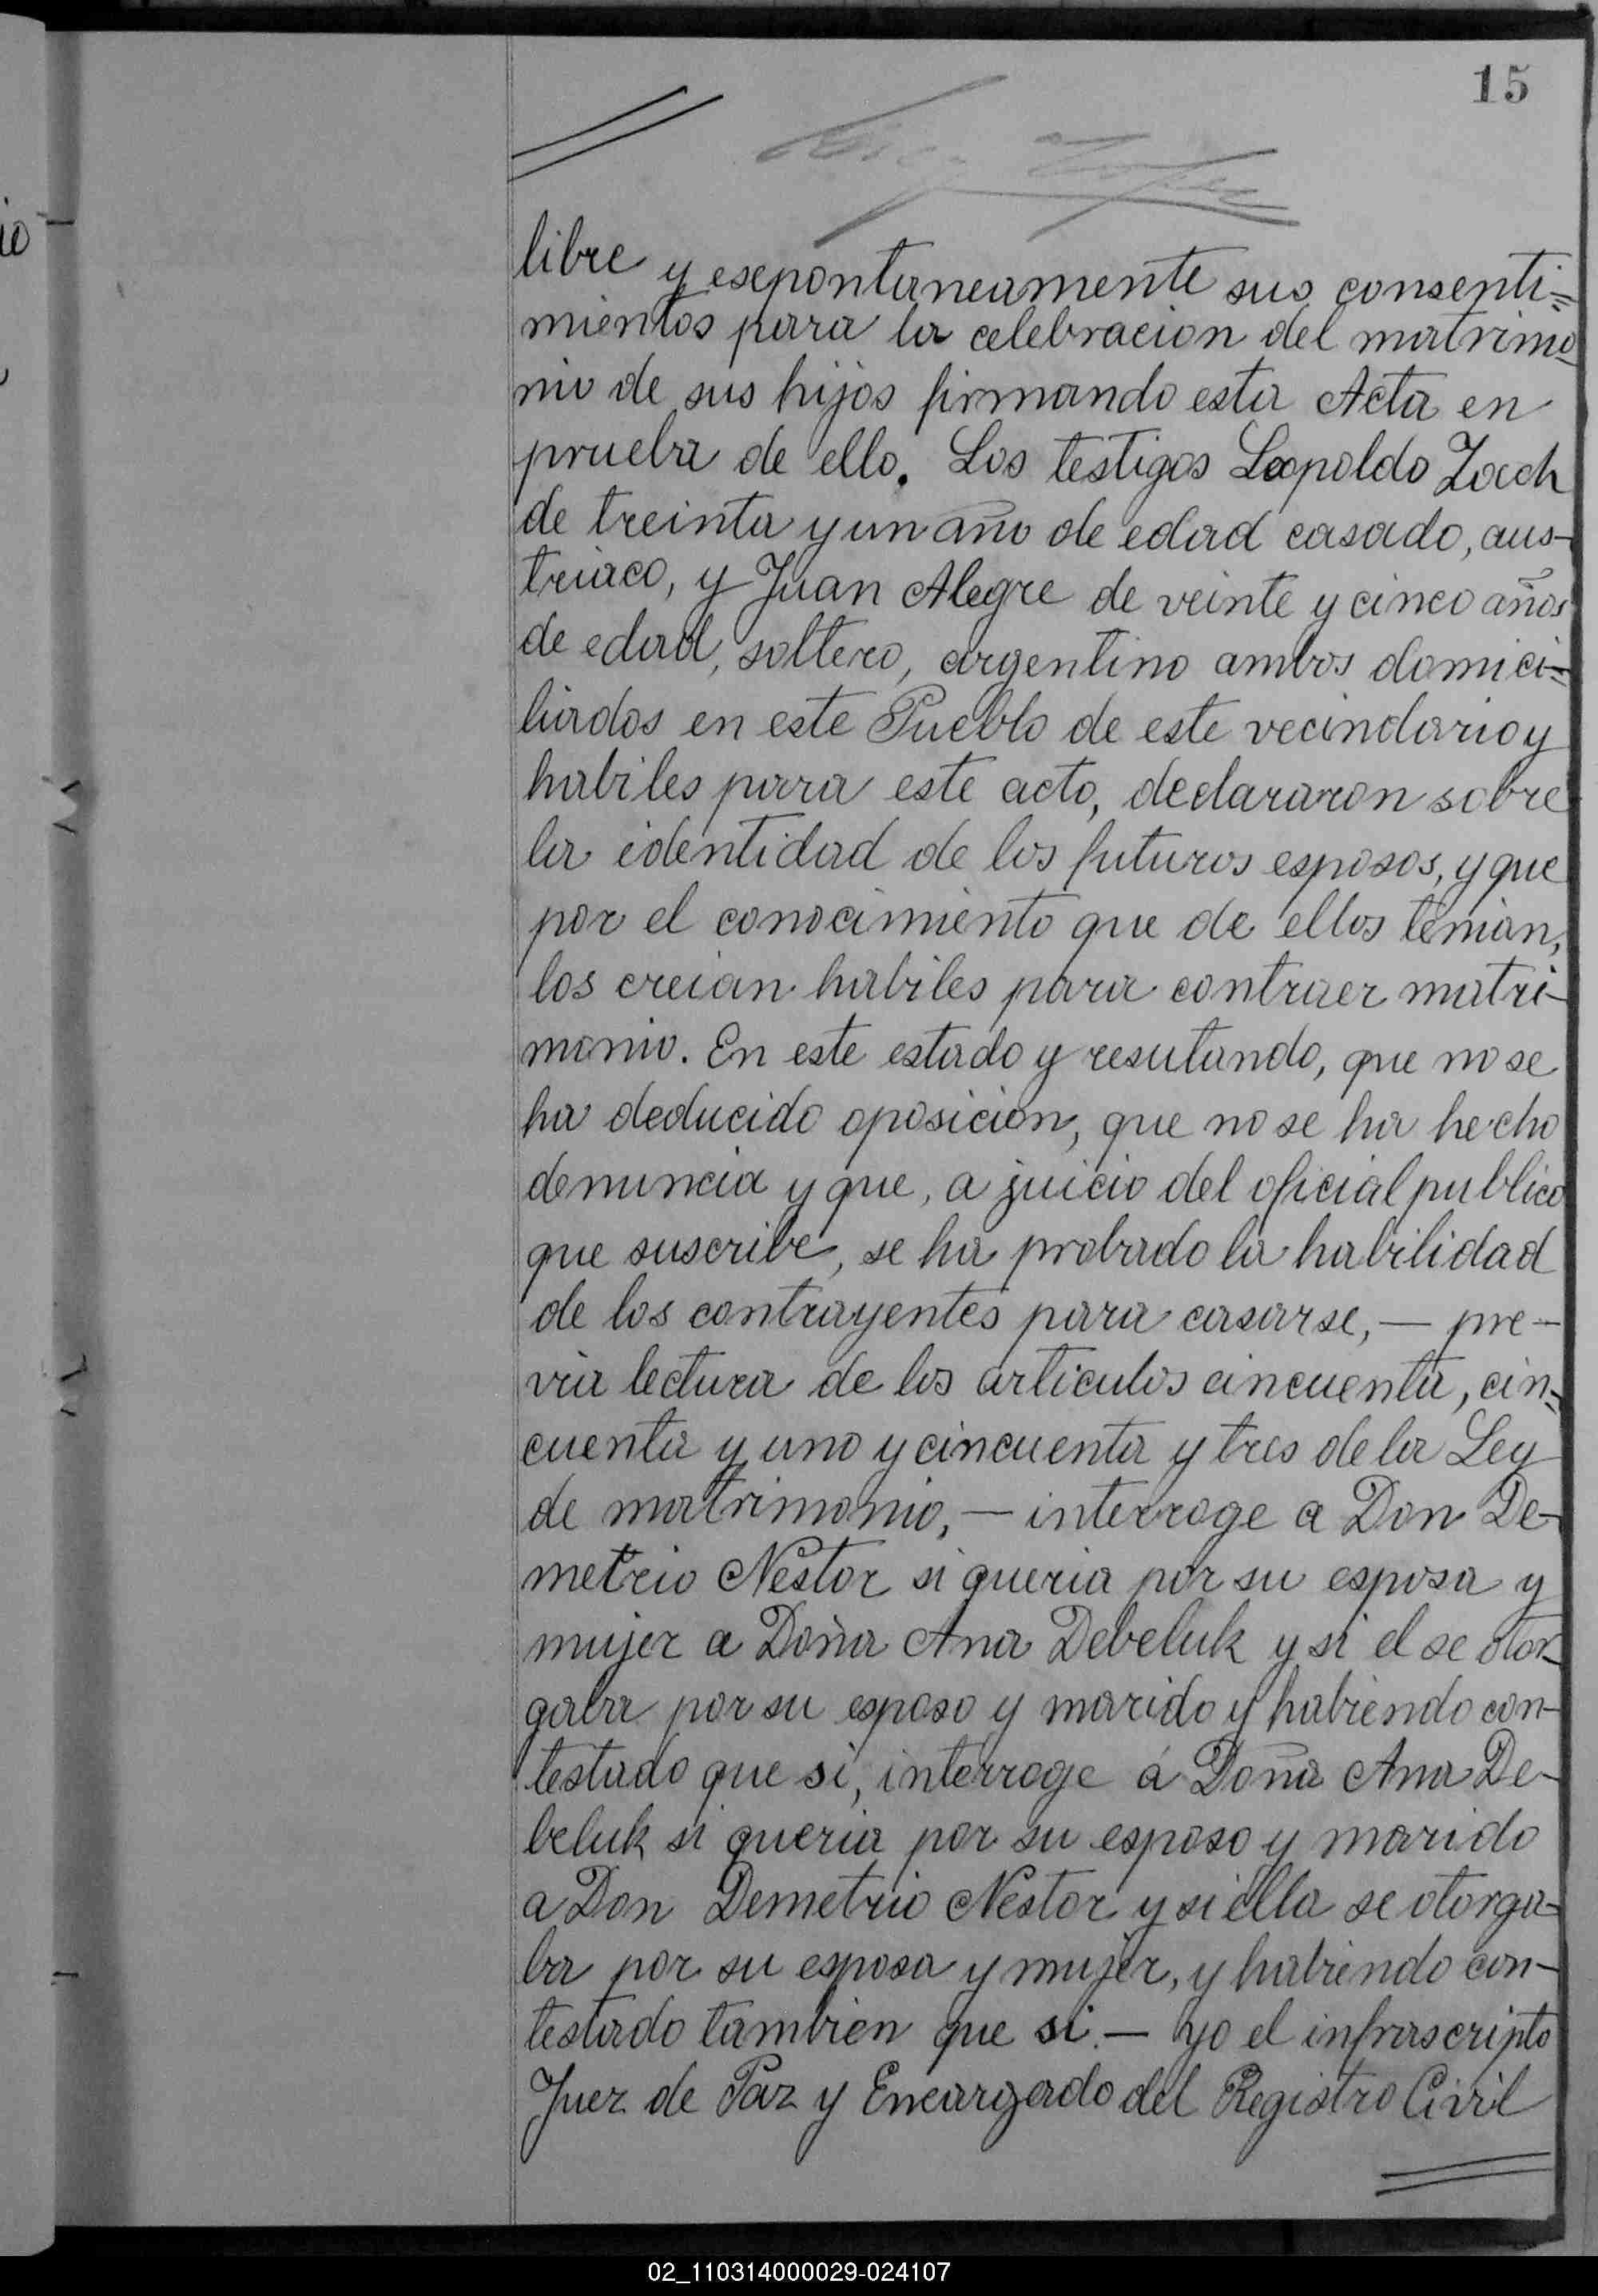 15
libre y esepontaneamente sus consenti=
mientos para la celebracion del matrimo
nio de sus hijos firmando esta Acta en
prueba de ello. Los testigos Leopoldo Zach
de treinta y un año de edad casado, aus-
triaco, y Juan Alegre de veinte y cinco años
de edad, soltero, argentino ambos domici=
liados en este Pueblo de este vecindario y
habiles para este acto, declararon sobre
la identidad de los futuros esposos, y que
por el conocimiento que de ellos tenian,
los creian habiles para contraer matri-
monio. En este estado y resutando, que no se
ha deducido oposicion, que no se ha hecho
denuncia y que, a juicio del oficial publico
que suscribe, se ha probado la habilidad
de los contrayentes para casarse, — pre-
via lectura de los articulos cincuenta, cin-
cuenta y uno y cincuenta y tres de la Ley
de matrimonio, — interroge a Don De-
metrio Nestor si queria por su esposa y
mujer a Doña Ana Debeluk y si el se otor-
gaba por su esposo y marido y habiendo con-
testado que si, interroge á Doña Ana De-
beluk si queria por su esposo y marido
a Don Demetrio Nestor y si ella se otorga-
ba por su esposa y mujer, y habiendo con-
testado tambien que si. — yo el infrascripto
Juez de Paz y Encargado del Registro Civil
02_110314000029-024107